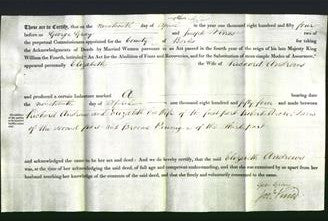 These are to Certify, that on the nineteenth day of in the year one thousand eight hundred and fifty four
before us George Gray and Joseph two of
the perpetual Commissioners appointed for the County of Berks for taking the
Acknowledgments of Deeds by Married Women pursuant to an Act passed in the fourth year of the reign of his late Majesty King
William the Fourth, intituled " An Act for the Abolition of Fines and Recoveries, and for the Substitution of more Simple Modes of Assurance."
appeared personally Elizabeth the Wife of Richard Andrews
and produced a certain Indenture marked A bearing date
the nineteenth day of one thousand eight hundred and fifty four and made between
Richard Andrews and Elizabeth his Wife of the first part
of the second part and of the third part
and acknowledged the same to be her act and deed : And we do hereby certify, that the said Elizabeth Andrews
was, at the time of her acknowledging the said deed, of full age and competent understanding, and that she was examined by us apart from her
husband touching her knowledge of the contents of the said deed, and that she freely and voluntarily consented to the same.